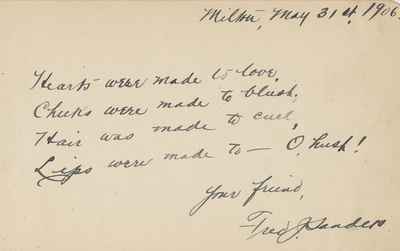 Milton, May 31st, 1906.
Hearts were made to love,
Cheeks were made to blush,
Hair was made to curl,
Lips were made to — O, hush!
Your friend,
Fred J. Sanders.